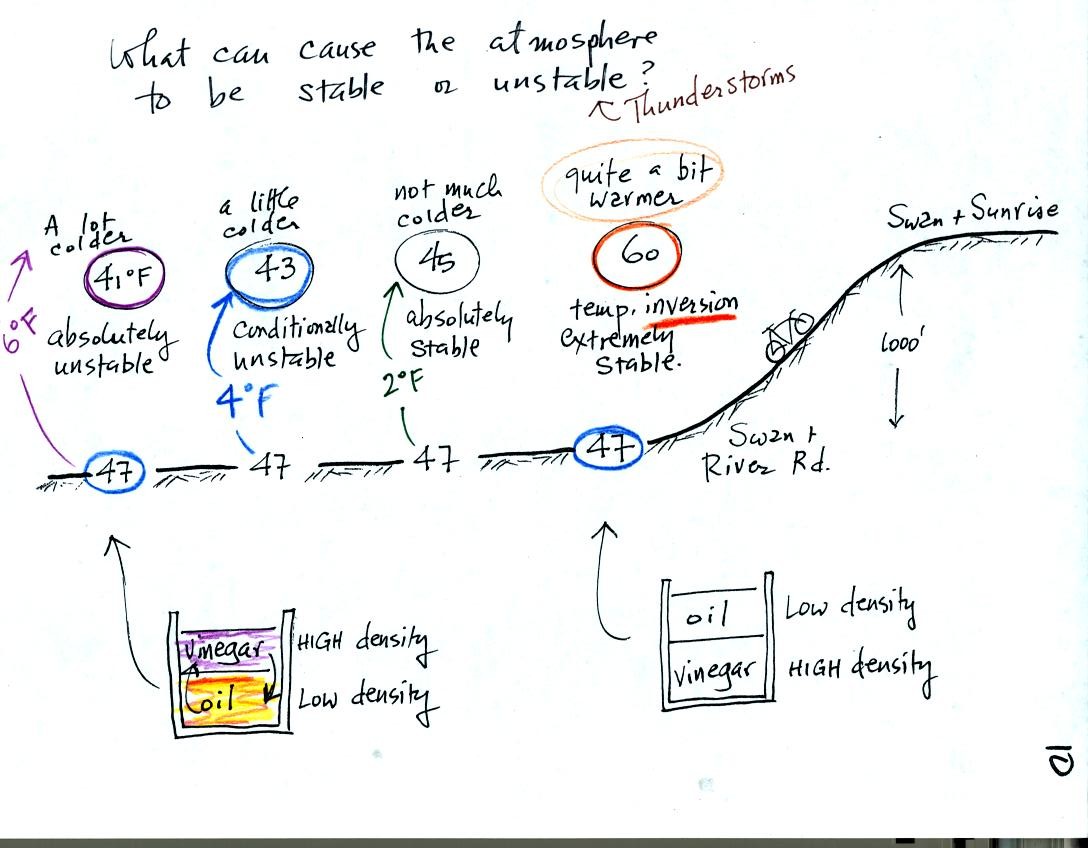 What can cause the atmosphere
to be stable or unstable?
↖ Thunderstorms
A lot
colder
41°F
absolutely
unstable
6°F
47
a little
colder
43
Conditionally
unstable
4°F
47
not much
colder
45
absolutely
stable
2°F
47
quite a bit
warmer
60
temp. inversion
extremely
stable.
47
Swan + Sunrise
1000'
Swan +
River Rd.
vinegar
HIGH density
oil
Low density
oil
Low density
vinegar
HIGH density